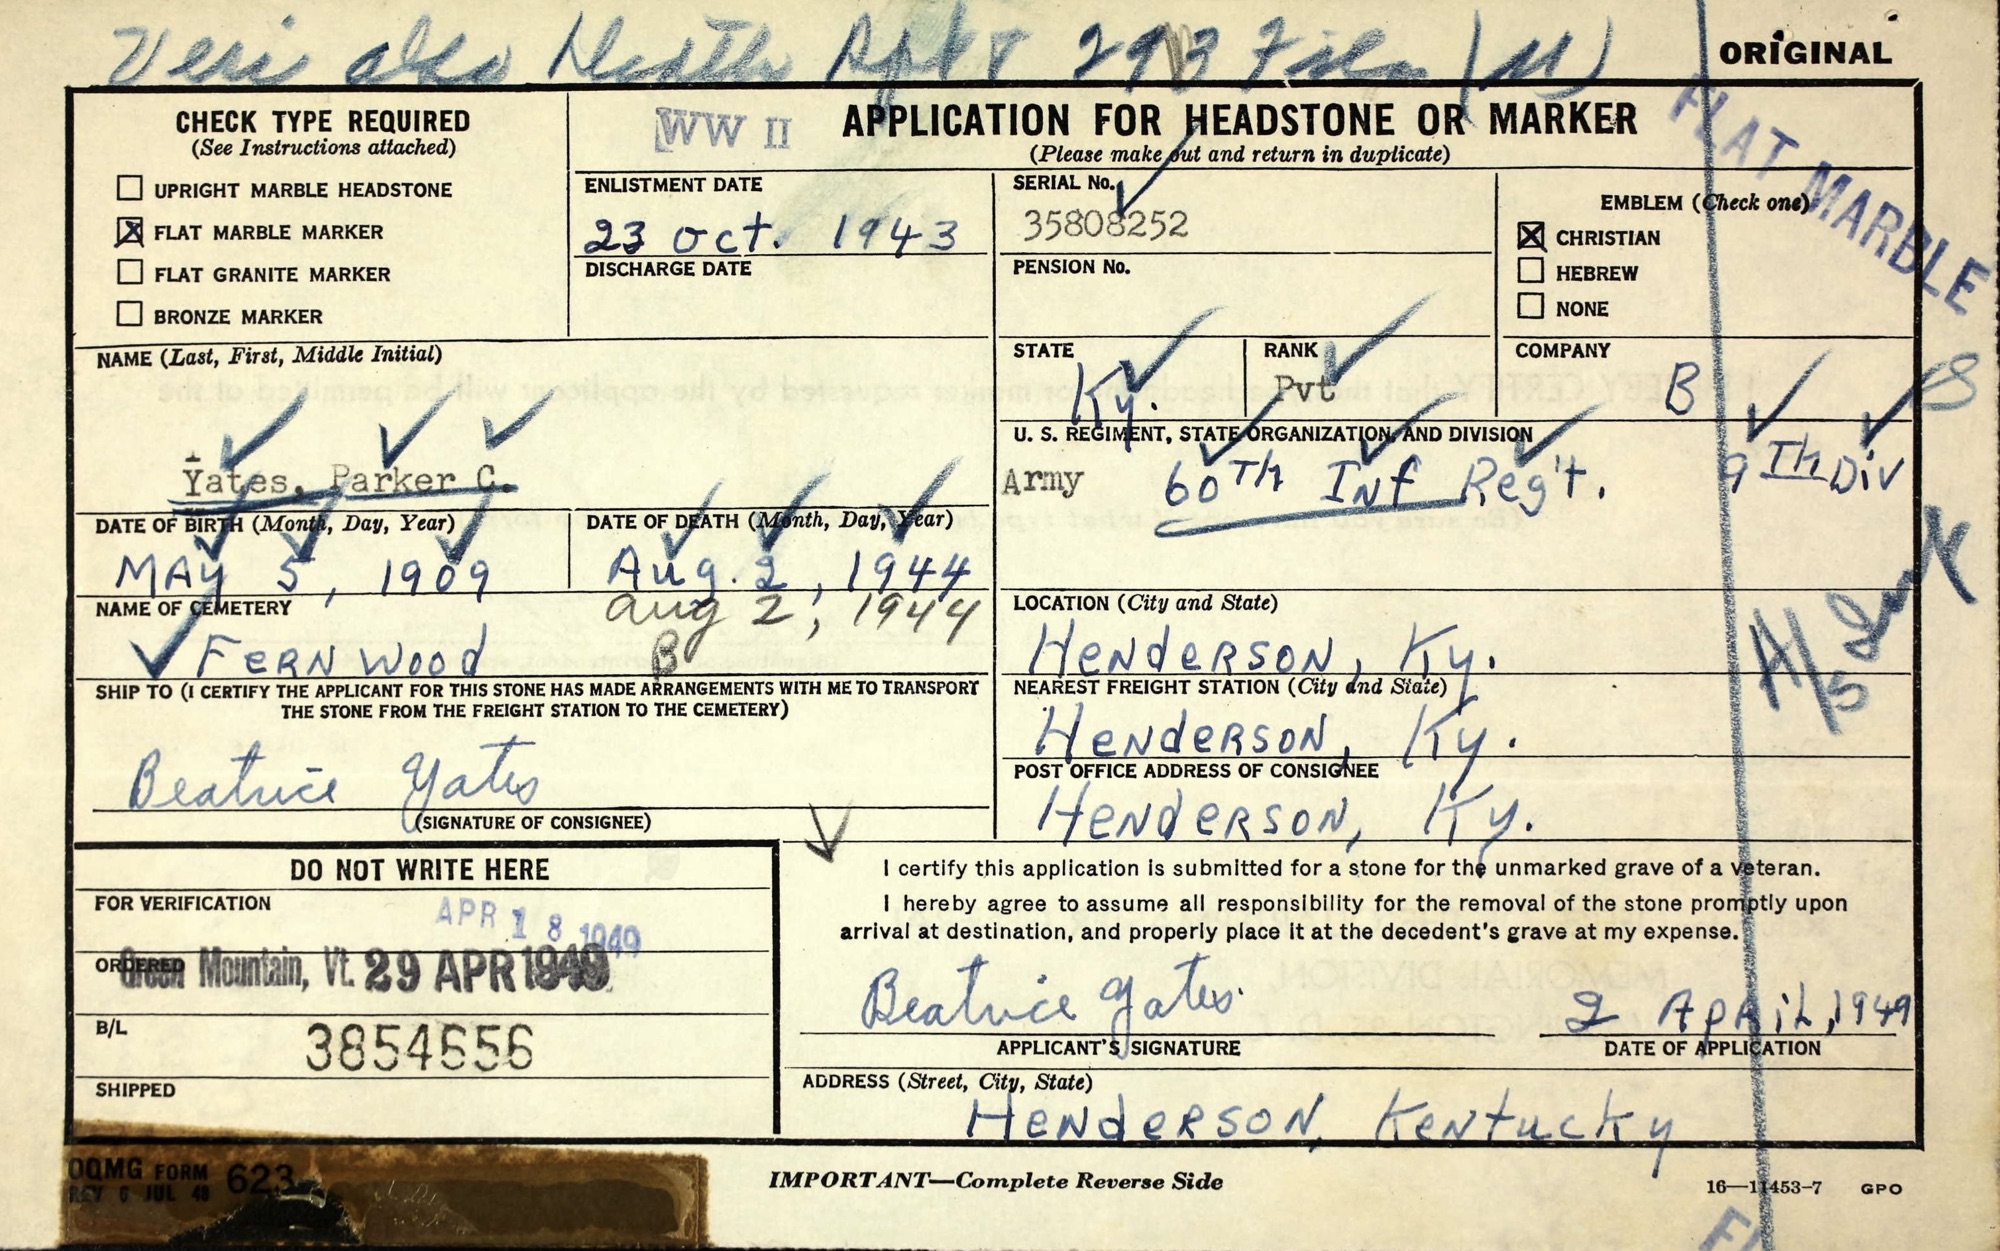 Veri also Death 293 File (M)
ORIGINAL
CHECK TYPE REQUIRED
(See Instructions attached)
UPRIGHT MARBLE HEADSTONE
FLAT MARBLE MARKER
FLAT GRANITE MARKER
BRONZE MARKER
WW II
APPLICATION FOR HEADSTONE OR MARKER
(Please make out and return in duplicate)
FLAT MARBLE
ENLISTMENT DATE
23 Oct. 1943
DISCHARGE DATE
SERIAL No.
35808252
PENSION No.
EMBLEM (Check one)
CHRISTIAN
HEBREW
NONE
NAME (Last, First, Middle Initial)
Yates, Parker C.
STATE
Ky.
RANK
Pvt
COMPANY
B
U. S. REGIMENT, STATE ORGANIZATION, AND DIVISION
Army 60Th Inf Reg't. 9Th Div
DATE OF BIRTH (Month, Day, Year)
MAY 5, 1909
DATE OF DEATH (Month, Day, Year)
Aug. 2, 1944
aug 2, 1944
B
NAME OF CEMETERY
FERNWOOD
LOCATION (City and State)
HENDERSON, Ky.
SHIP TO (I CERTIFY THE APPLICANT FOR THIS STONE HAS MADE ARRANGEMENTS WITH ME TO TRANSPORT
THE STONE FROM THE FREIGHT STATION TO THE CEMETERY)
Beatrice Yates
(SIGNATURE OF CONSIGNEE)
NEAREST FREIGHT STATION (City and State)
HENDERSON, Ky.
POST OFFICE ADDRESS OF CONSIGNEE
HENDERSON, Ky.
DO NOT WRITE HERE
FOR VERIFICATION
APR 18 1949
ORDERED
Green Mountain, Vt. 29 APR 1949
B/L
3854656
SHIPPED
I certify this application is submitted for a stone for the unmarked grave of a veteran.
I hereby agree to assume all responsibility for the removal of the stone promptly upon
arrival at destination, and properly place it at the decedent's grave at my expense.
Beatrice Yates
2 April, 1949
APPLICANT'S SIGNATURE
DATE OF APPLICATION
ADDRESS (Street, City, State)
HENDERSON, Kentucky
OQMG FORM 623
REV 6 JUL 48
IMPORTANT—Complete Reverse Side
16—11453-7 GPO